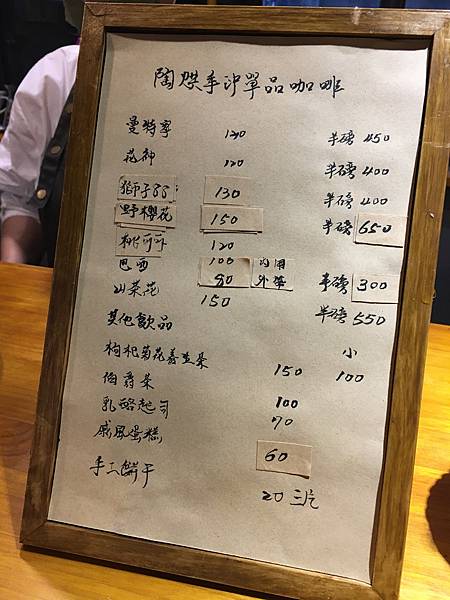 陶烘手沖單品咖啡
曼特寧 120 半磅 450
花神 120 半磅 400
獅子 130 半磅 400
野櫻花 150 半磅 650
120
巴西 100 內用
80 外帶 半磅 300
山茶花 150 半磅 550
其他飲品
枸杞菊花養生茶 150 小 100
伯爵茶 100
乳酪起司 70
戚風蛋糕 60
手工餅干 20 三片